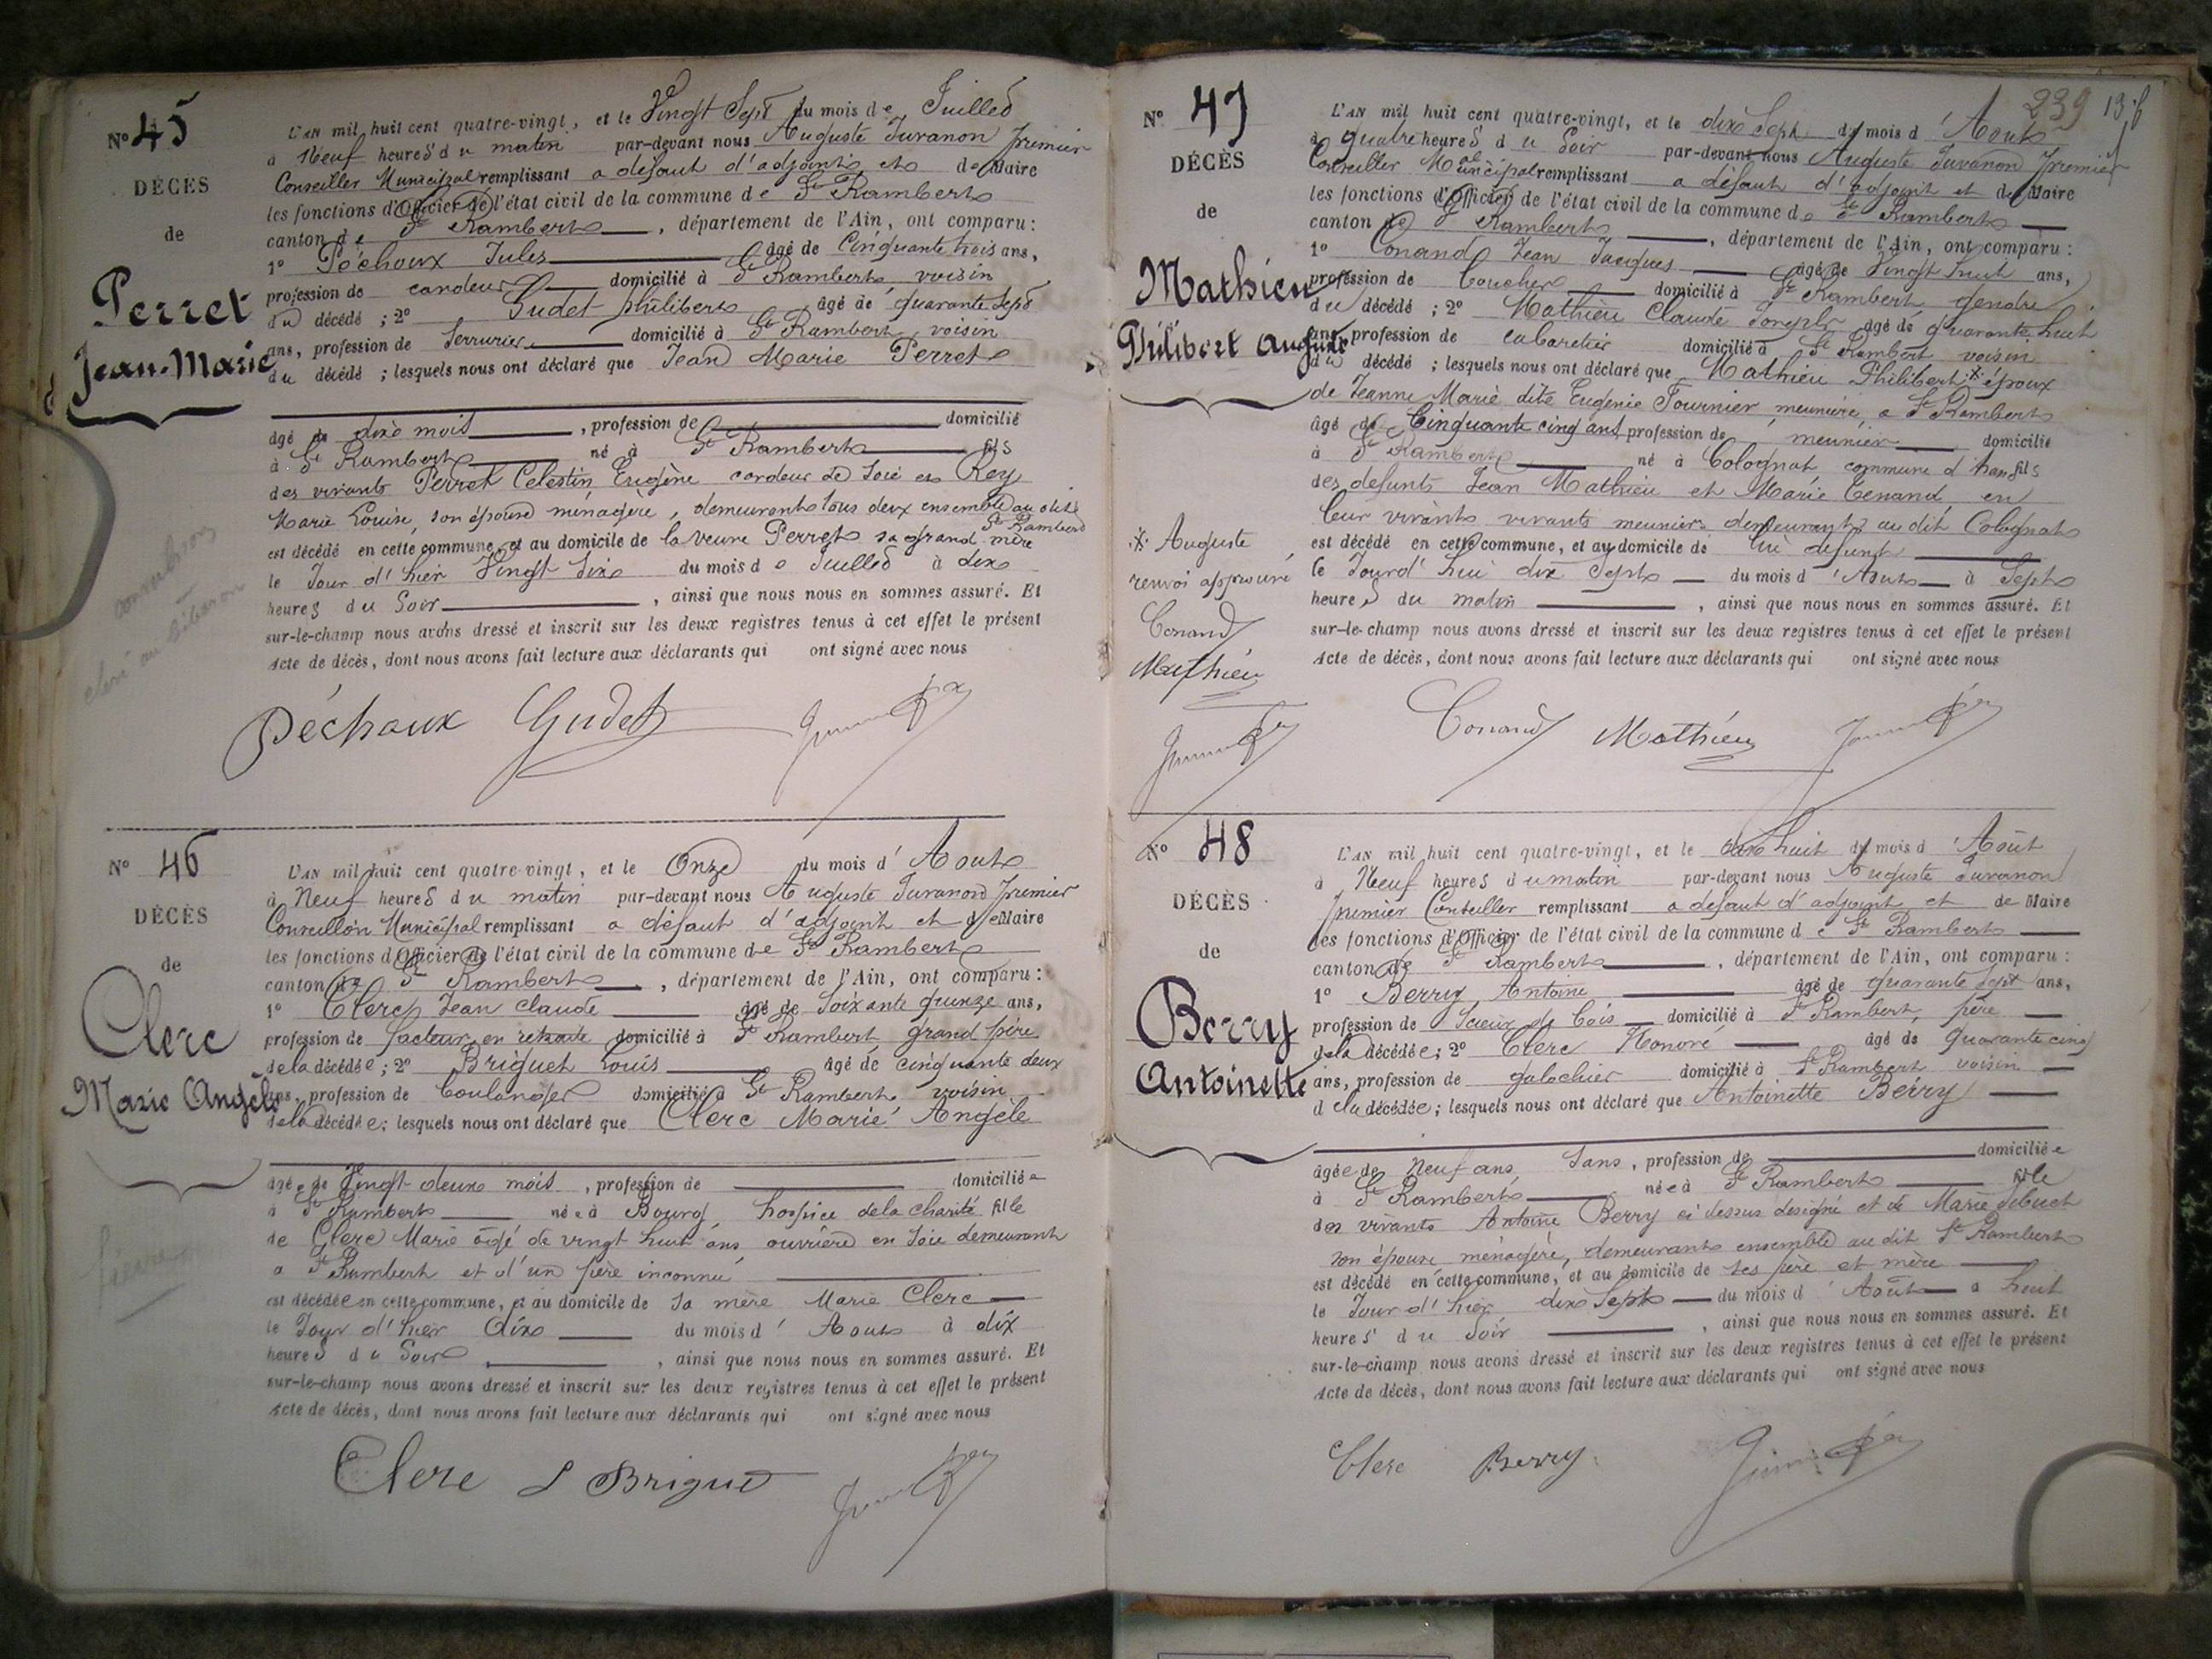 No 45
DÉCÈS
de
Perret
Jean-Marie
L'AN mil huit cent quatre-vingt, et le Vingt Sept du mois de Juillet
à Neuf heures du matin par-devant nous Auguste Juvanon premier
Conseiller Municipal remplissant a défaut d'adjoint et de Maire
les fonctions d'Officier de l'état civil de la commune de St Rambert
canton de St Rambert, département de l'Ain, ont comparu:
1° Péchoux Jules âgé de Cinquante trois ans,
profession de cardeur domicilié à St Rambert voisin
du décédé; 2° Gudet philibert âgé de quarante Sept
ans, profession de Serrurier domicilié à St Rambert voisin
du décédé; lesquels nous ont déclaré que Jean Marie Perret
âgé de dix mois, profession de domicilié
à St Rambert né à St Rambert fils
des vivants Perret Celestin Eugène cardeur de Soie et Rey
Marie Louise, son épouse ménagère, demeurants tous deux ensemble au dit St Rambert
est décédé en cette commune, et au domicile de la veuve Perret sa grand-mère
le Jour d'hier Vingt Six du mois de Juillet à dix
heures du Soir, ainsi que nous nous en sommes assuré. Et
sur-le-champ nous avons dressé et inscrit sur les deux registres tenus à cet effet le présent
Acte de décès, dont nous avons fait lecture aux déclarants qui ont signé avec nous
convulsions
élevé au biberon
Péchoux Gudet
No 46
DÉCÈS
de
Clerc
Marie Angèle
L'AN mil huit cent quatre-vingt, et le Onze du mois d'Aout
à Neuf heures du matin par-devant nous Auguste Juvanon premier
Conseiller Municipal remplissant a défaut d'adjoint et de Maire
les fonctions d'Officier de l'état civil de la commune de St Rambert
canton de St Rambert, département de l'Ain, ont comparu:
1° Clerc Jean Claude âgé de Soixante quinze ans,
profession de facteur en retraite domicilié à St Rambert grand père
de la décédée; 2° Briguet Louis âgé de cinquante deux
ans, profession de boulanger domicilié à St Rambert voisin
de la décédée; lesquels nous ont déclaré que Clerc Marie Angèle
âgée de Vingt deux mois, profession de domiciliée
à St Rambert née à Bourg hospice de la charité fille
de Clerc Marie âgé de vingt huit ans ouvrière en Soie demeurant
a St Rambert et d'un père inconnu
est décédée en cette commune, et au domicile de sa mère Marie Clerc
le Jour d'hier dix du mois d'Aout à dix
heures du Soir, ainsi que nous nous en sommes assuré. Et
sur-le-champ nous avons dressé et inscrit sur les deux registres tenus à cet effet le présent
Acte de décès, dont nous avons fait lecture aux déclarants qui ont signé avec nous
Clerc L Briguet
239
No 47
DÉCÈS
de
Mathieu
Philibert Auguste
L'AN mil huit cent quatre-vingt, et le dix Sept du mois d'Aout
à quatre heures du Soir par-devant nous Auguste Juvanon premier
Conseiller Municipal remplissant a défaut d'adjoint et de Maire
les fonctions d'Officier de l'état civil de la commune de St Rambert
canton de St Rambert, département de l'Ain, ont comparu:
1° Conand Jean Jacques âgé de Vingt huit ans,
profession de boucher domicilié à St Rambert gendre
du décédé; 2° Mathieu Claude Joseph âgé de quarante huit
ans, profession de cabaretier domicilié à St Rambert voisin
du décédé; lesquels nous ont déclaré que Mathieu Philibert * époux
de Jeanne Marie dite Eugenie Fournier, meunière, a St Rambert
âgé de Cinquante cinq ans, profession de meunier domicilié
à St Rambert né à Colognat commune d' fils
des defunts Jean Mathieu et Marie Tenand, en
leur vivants vivants meuniers demeurants au dit Colognat
est décédé en cette commune, et au domicile de lui defunt
le Jourd'hui dix Sept du mois d'Aout à Sept
heures du matin, ainsi que nous nous en sommes assuré. Et
sur-le-champ nous avons dressé et inscrit sur les deux registres tenus à cet effet le présent
Acte de décès, dont nous avons fait lecture aux déclarants qui ont signé avec nous
* Auguste
renvoi approuvé
Conand
Mathieu
Conand Mathieu
No 48
DÉCÈS
de
Berry
Antoinette
L'AN mil huit cent quatre-vingt, et le dix huit du mois d'Août
à Neuf heures du matin par-devant nous Auguste Juvanon
premier Conseiller remplissant a défaut d'adjoint et de Maire
les fonctions d'Officier de l'état civil de la commune de St Rambert
canton de St Rambert, département de l'Ain, ont comparu:
1° Berry Antoine âgé de quarante Sept ans,
profession de Scieur de bois domicilié à St Rambert père
de la décédée; 2° Clerc Honoré âgé de quarante cinq
ans, profession de galochier domicilié à St Rambert voisin
de la décédée; lesquels nous ont déclaré que Antoinette Berry
âgée de Neuf ans Sans, profession de domiciliée
à St Rambert née à St Rambert fille
des vivants Antoine Berry ci dessus désigné et de Marie
son épouse ménagère, demeurants ensemble au dit St Rambert
est décédé en cette commune, et au domicile de ses père et mère
le Jour d'hier dix Sept du mois d'Août a huit
heures du Soir, ainsi que nous nous en sommes assuré. Et
sur-le-champ nous avons dressé et inscrit sur les deux registres tenus à cet effet le présent
Acte de décès, dont nous avons fait lecture aux déclarants qui ont signé avec nous
Clerc Berry